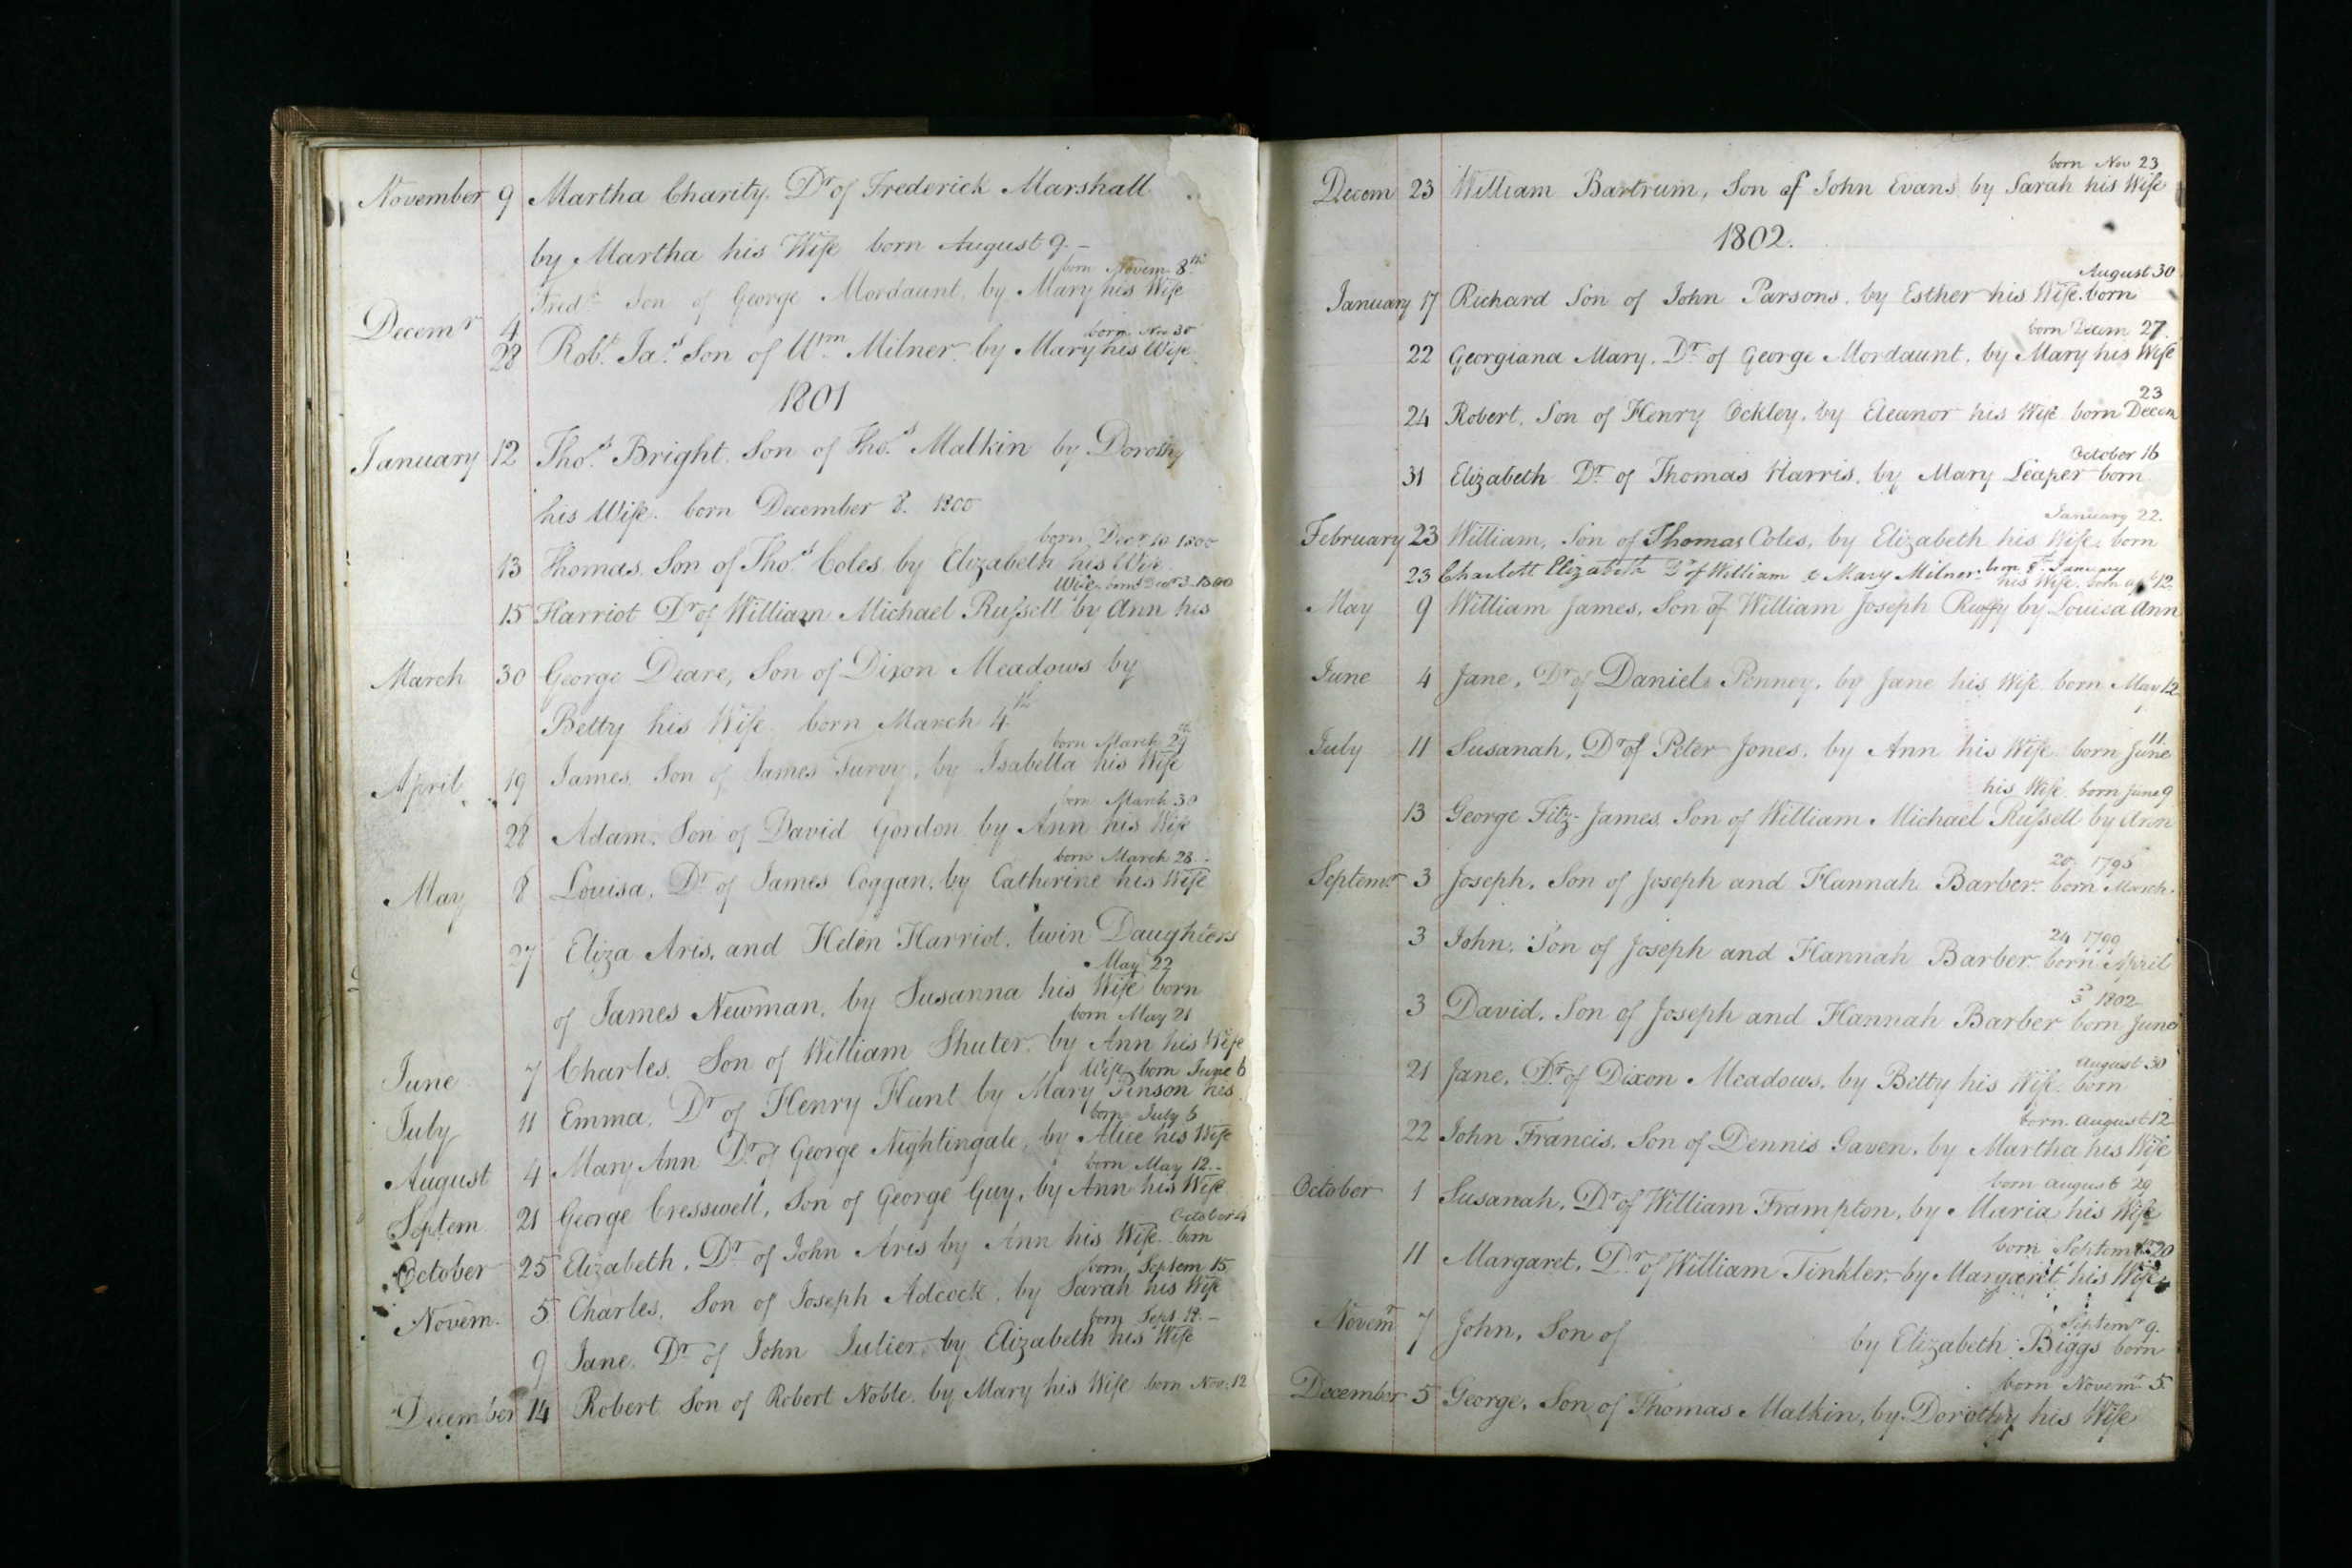 November 9 Martha Charity. Dr of Frederick Marshall
by Martha his Wife born August 9. -
born Novem. 8th
Fredk Son of George Mordaunt, by Mary his Wife
Decemr 4
born Nov 30
28 Robt. Jas. Son of Wm Milner by Mary his Wife
1801
January 12 Thos. Bright. Son of Thos. Malkin by Dorothy
his Wife. born December 8. 1800
born Decr 10 1800
13 Thomas, Son of Thos. Coles, by Elizabeth his Wife
Wife. born Decr 3 - 1800
15 Harriot Dr of William Michael Russell by Ann his
March 30 George Deare, Son of Dixon Meadows by
Betty his Wife. born March 4th
born March 29th
April 19 James, Son of James Turvy, by Isabella his Wife
born March 30
28 Adam, Son of David Gordon by Ann his Wife
born March 28. -
May 8 Louisa, Dr of James Coggan, by Catherine his Wife
27 Eliza Aris, and Helen Harriot, twin Daughters
May 22
of James Newman, by Susanna his Wife born
born May 21
June 7 Charles, Son of William Shuter, by Ann his Wife
Wife born June 6
July 11 Emma, Dr of Henry Hunt by Mary Pinson his
born July 6
August 4 Mary Ann Dr of George Nightingale, by Alice his Wife
born May 12. -
Septem 21 George Cresswell, Son of George Guy, by Ann his Wife
October 4
October 25 Elizabeth, Dr of John Aris by Ann his Wife. born
born, Septem 15
Novem. 5 Charles, Son of Joseph Adcock, by Sarah his Wife
born Sept 18. -
9 Jane, Dr of John Julier, by Elizabeth his Wife
December 14 Robert Son of Robert Noble, by Mary his Wife born Nov. 12
born Nov 23
Decem 23 William Bartrum, Son of John Evans by Sarah his Wife
1802.
August 30
January 17 Richard Son of John Parsons, by Esther his Wife. born
born Decem 27.
22 Georgiana Mary, Dr of George Mordaunt, by Mary his Wife
23
24 Robert, Son of Henry Ockley, by Eleanor his Wife born Decem
October 16
31 Elizabeth Dr of Thomas Harris, by Mary Leaper born
January 22.
February 23 William, Son of Thomas Coles, by Elizabeth his Wife, born
23 Charlott Elizabeth Dr of William & Mary Milner. born 8th January
his Wife. born apl 12
May 9 William James, Son of William Joseph Ruffy by Louisa Ann
June 4 Jane, Dr of Daniel Penney, by Jane his Wife born May 12
11
July 11 Susanah, Dr of Peter Jones, by Ann his Wife born June
his Wife. born June 9
13 George Fitz-James, Son of William Michael Russell by Ann
20. 1795
Septemr 3 Joseph, Son of Joseph and Hannah Barber. born March.
24 1799
3 John, Son of Joseph and Hannah Barber. born April
3 1802
3 David, Son of Joseph and Hannah Barber born June
August 30
21 Jane, Dr of Dixon Meadows, by Betty his Wife. born
born. August 12
22 John Francis, Son of Dennis Gaven, by Martha his Wife
born August 29
October 1 Susanah, Dr of William Frampton, by Maria his Wife
born Septemr 20
11 Margaret, Dr of William Tinkler, by Margaret his Wife
Septemr 9.
Novemr 7 John, Son of by Elizabeth Biggs born
born Novemr 5.
December 5 George, Son of Thomas Malkin, by Dorothy his Wife